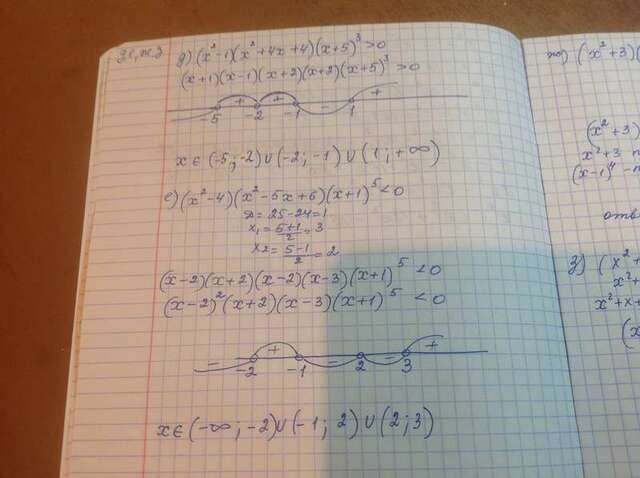 д) (x²-1)(x²+4x+4)(x+5)³>0
(x+1)(x-1)(x+2)(x+2)(x+5)³>0
+ + - +
-5 -2 -1 1
x∈(-5;-2)∪(-2;-1)∪(1;+∞)
е) (x²-4)(x²-5x+6)(x+1)⁵<0
D=25-24=1
x₁=5+1/2=3
x₂=5-1/2=2
(x-2)(x+2)(x-2)(x-3)(x+1)⁵<0
(x-2)²(x+2)(x-3)(x+1)⁵<0
- + - - +
-2 -1 2 3
x∈(-∞;-2)∪(-1;2)∪(2;3)
ж) (x²+3)(
(x²+3)
x²+3 п
(x-1)⁴-п
отв
з) (x²+
x²+
x²+x+
(x